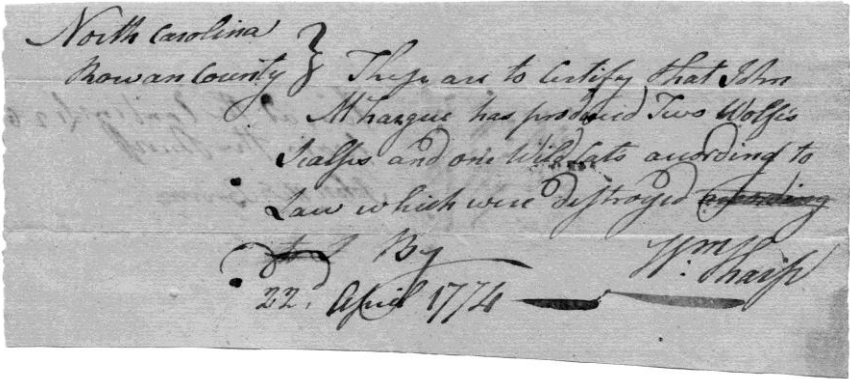 North Carolina
Rowan County } These are to Certify that John
McHargue has produced Two Wolfs
Scalps and one Wild Cats according to
Law which were destroyed according
to L By Wm Sharp
22d April 1774